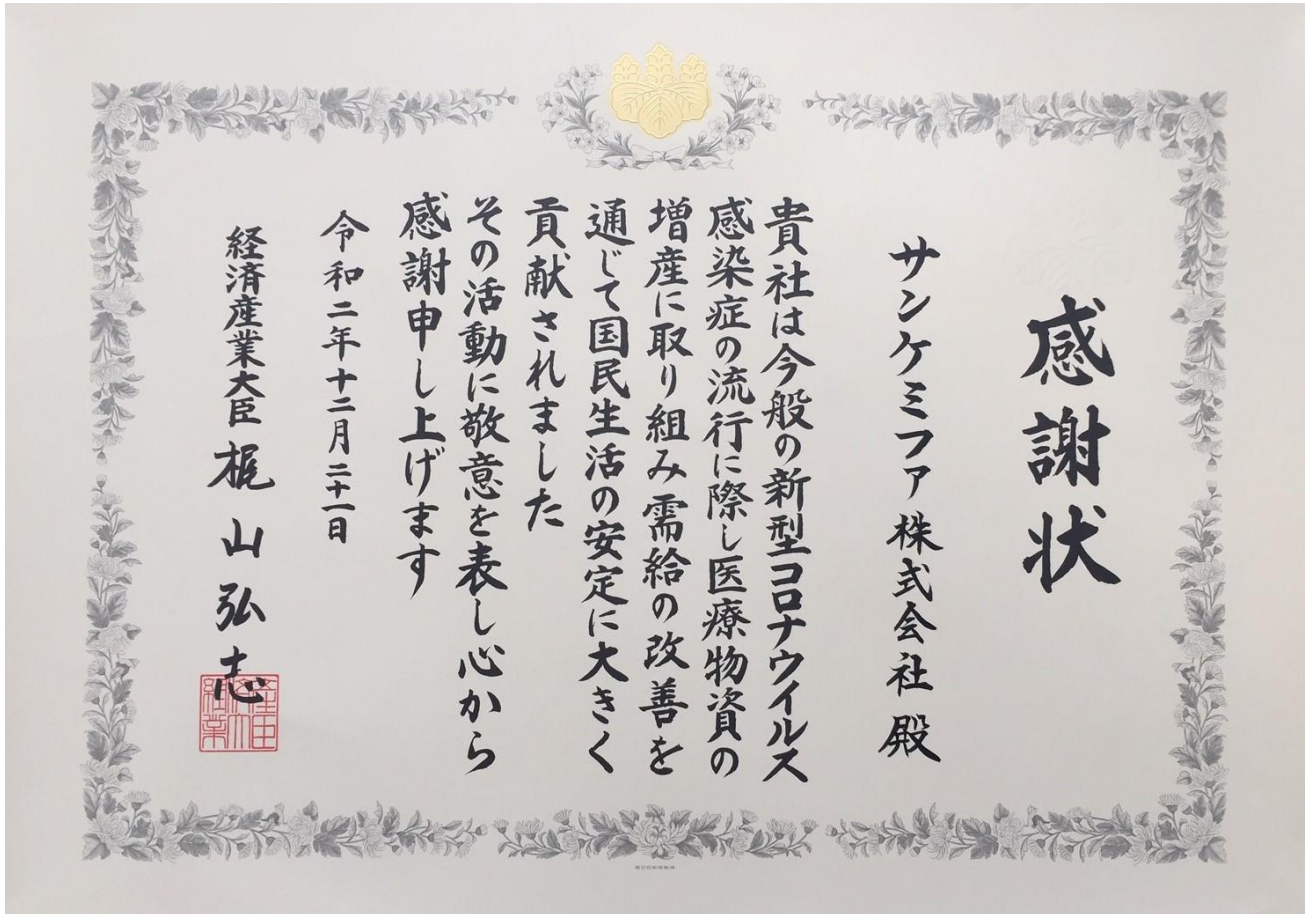 感謝状
サンケミファ株式会社 殿
貴社は今般の新型コロナウイルス
感染症の流行に際し医療物資の
増産に取り組み需給の改善を
通じて国民生活の安定に大きく
貢献されました
その活動に敬意を表し心から
感謝申し上げます
令和二年十二月二十一日
経済産業大臣 梶山弘志